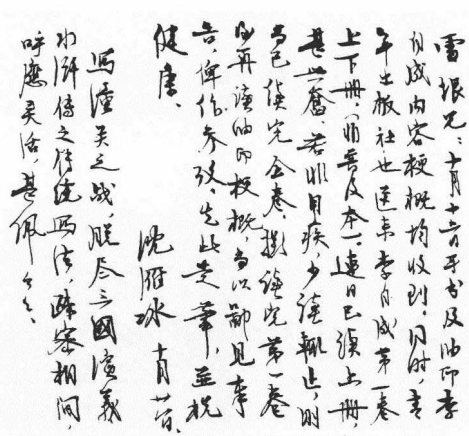 雪垠兄：十月十六日手书及油印李
自成内容梗概均收到。同时，青
年出版社也送来李自成第一卷
上下册，（非普及本）连日已读上册，
甚兴奋，若非目疾，少读辄止，则
当已读完全卷，拟读完第一卷
后再读油印梗概，当以鄙见奉
告，俾作参考，先此走筆，並祝
健康、
沈雁冰 十月
写潼关之战，脱尽三國演義
水浒传之传统写法，疏密相间，
呼应灵活，甚佩々々、